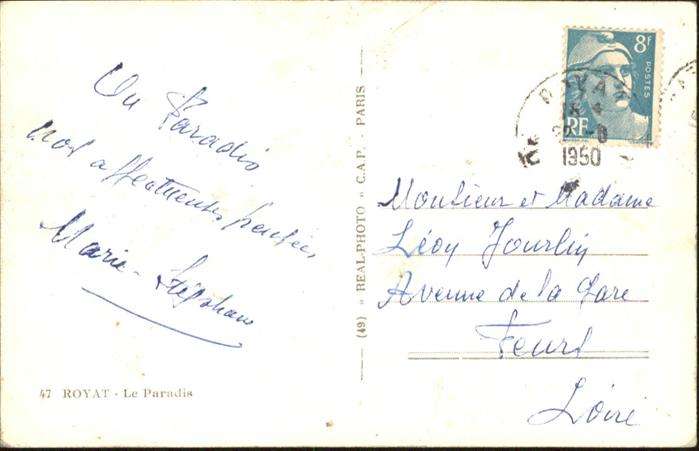 Du Paradis
nos affectueuses pensées
Marie-Stéphane
47 ROYAT - Le Paradis
(49) " REAL-PHOTO " C.A.P. - PARIS
8F
POSTES
RF
ROYAT
1950
Monsieur et Madame
Léon Jourlin
Avenue de la Gare
Feurs
Loire